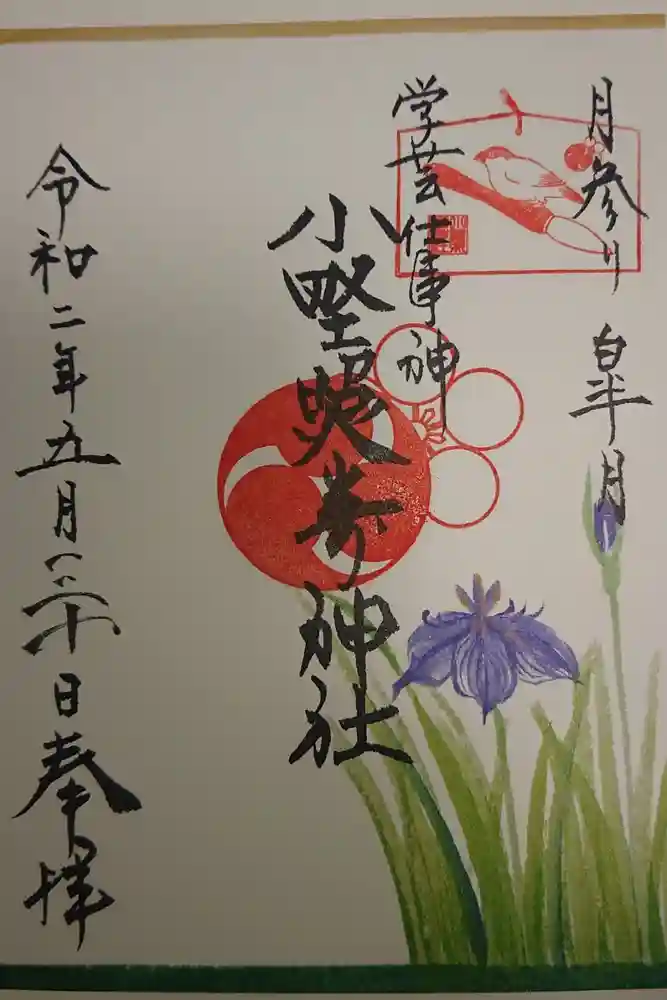 月参り 皐月
学芸仕事神
小野照崎神社
令和二年五月三十日奉拝